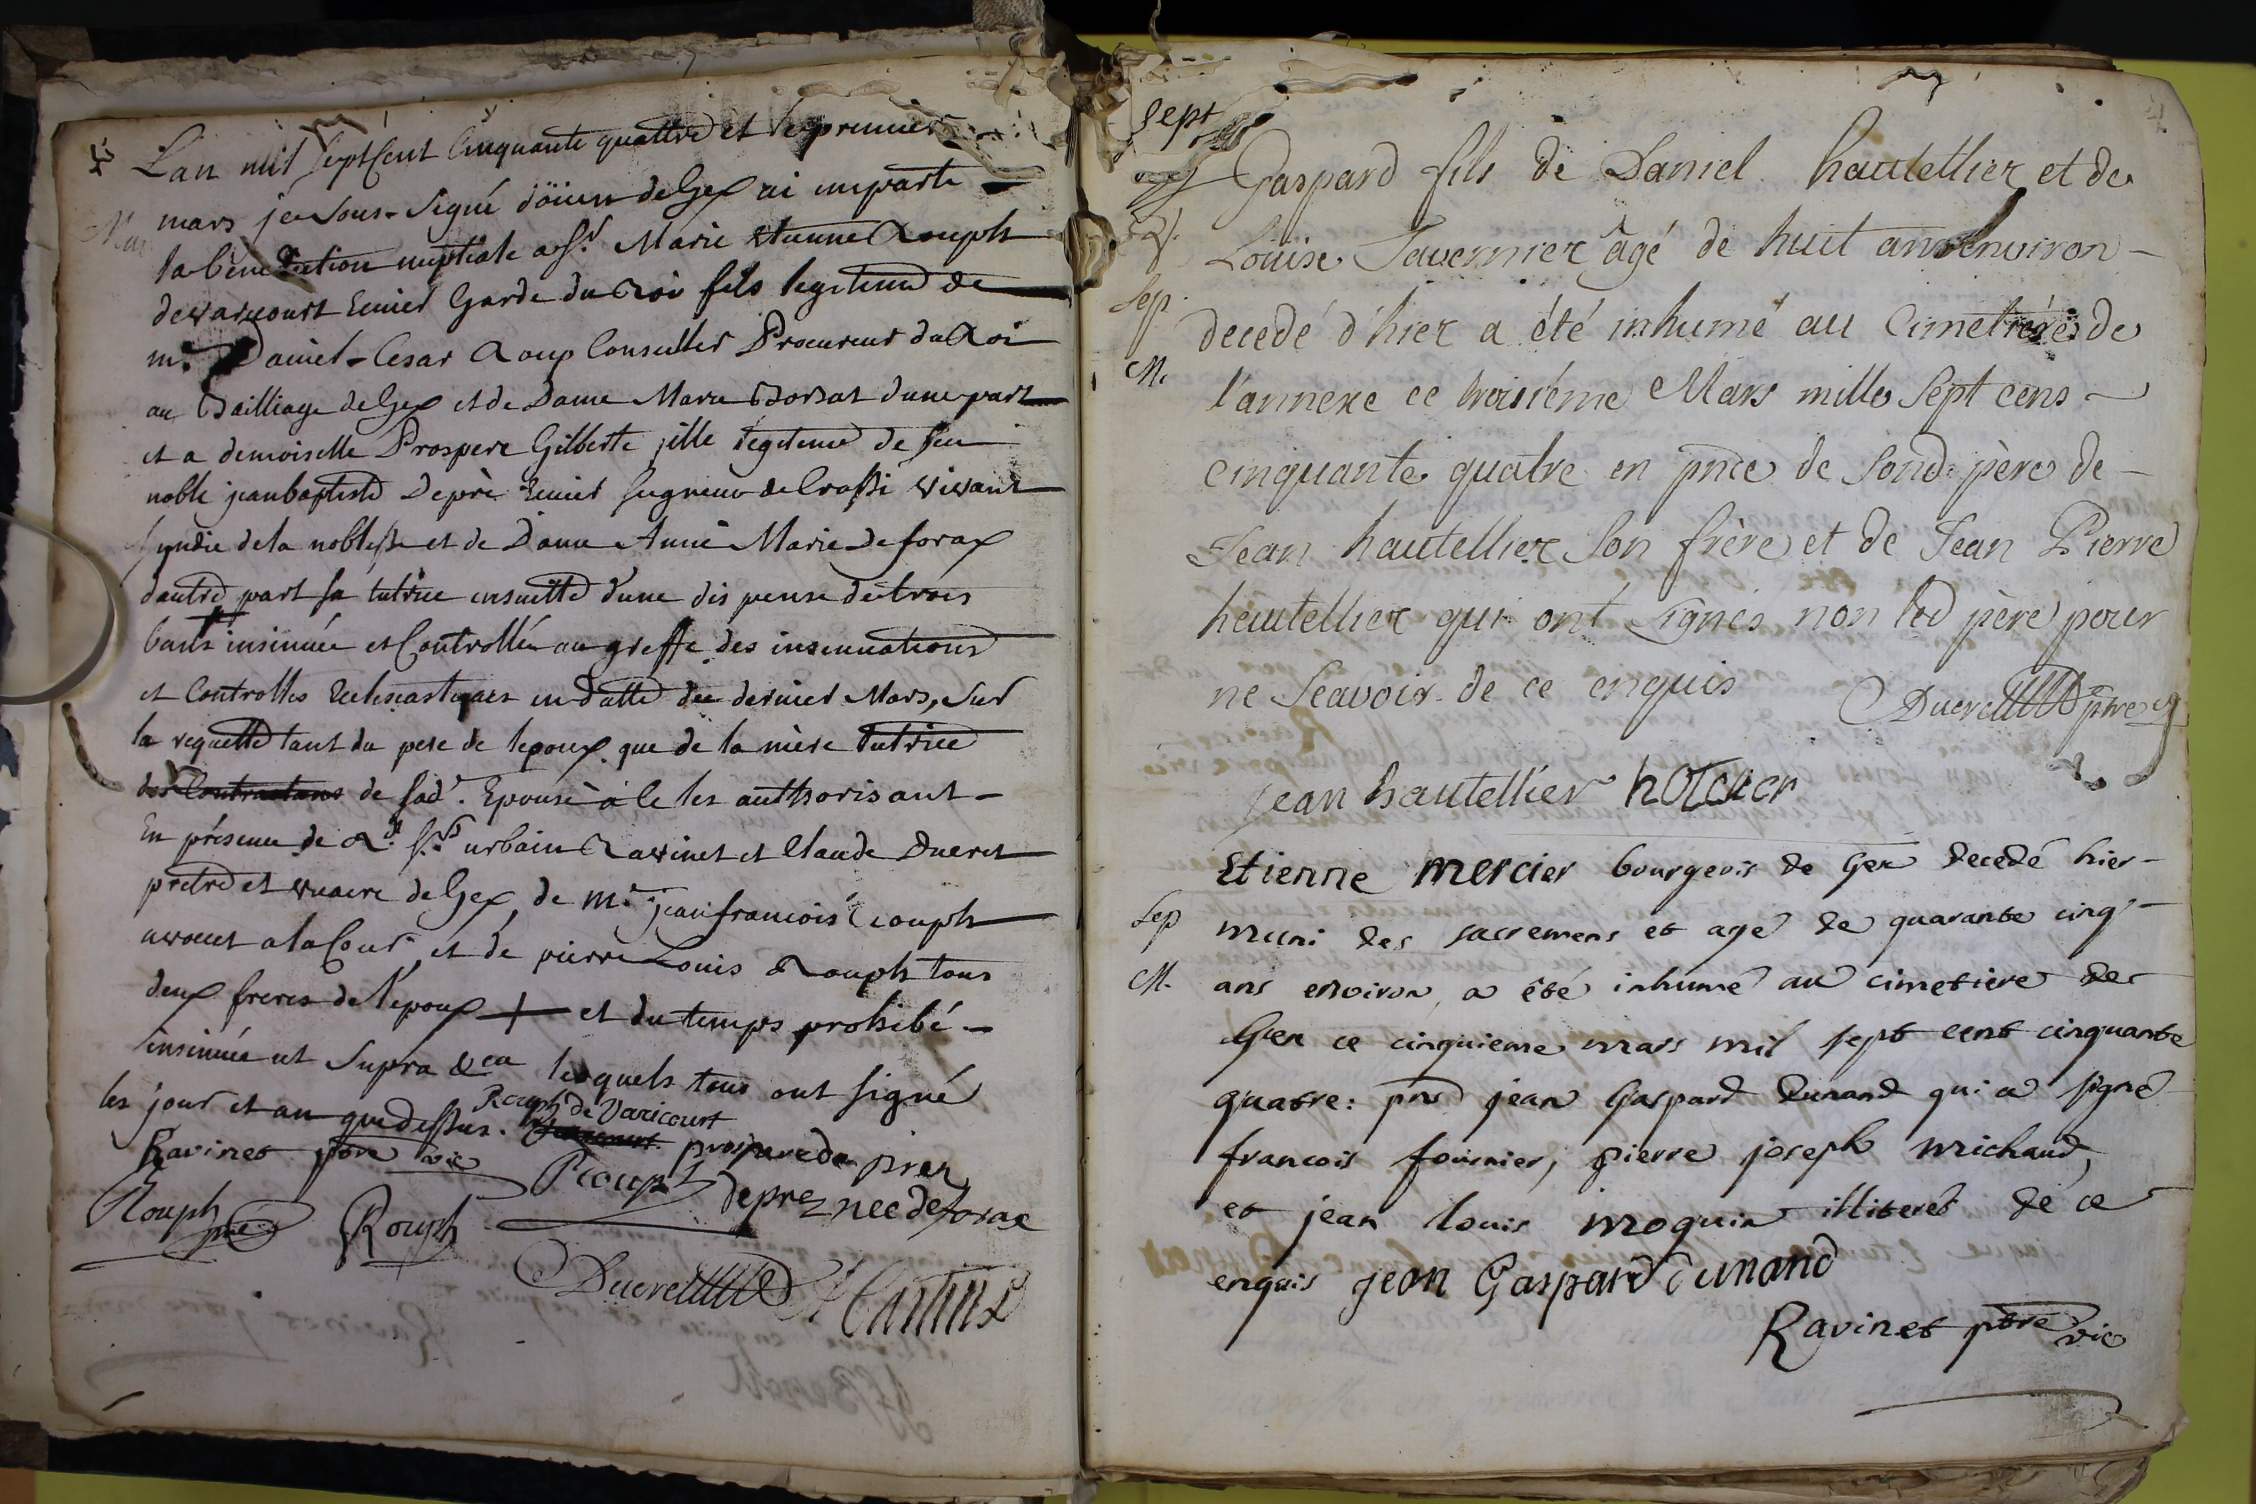 L'an mil sept Cent Cinquante quattre et le premier
mars je sous-signé doïen de Gex ai imparti
la bénédiction nuptiale a Sr. Marie Etienne Rouph
de varicourt Ecuier Garde du Roi fils legitime de
mr. Daniel-Cesar Roup Conseiller Procureur du Roi
au Bailliage de Gex et de Dame Marie Borsat d'une part
et a demoiselle Prospere Gilberte fille legitime de feu
noble jean baptiste Deprèz Ecuier seigneur de Crassi vivant
syndic de la noblesse et de Dame Anne Marie de forax
dautre part sa tutrice ensuitte d'une dispense de trois
bans insinuée et Controllée au greffe des insinuations
et Controlles Eclesiastiques en datte du dernier Mars, Sur
la requette tant du pere de lepoux que de la mère tutrice
des Contractans de sad. Epouse à ce les authorisant -
En présence de Rd. Srs. urbain Ravinet et Claude Ducret
pretre et vicaire de Gex, de mr. jean francois rouph
avocat a la Cour, et de pierre Louis Rouph tous
deux freres de l'epoux + et du temps prohibé -
insinuée ut supra lesquels tous ont signé
les jour et an que dessus. Rouph de Varicourt
Ravinet ptre vic prospere de prez
Rouph Rouph Rouph deprez née deforax
Ducret
Sept
Gaspard fils de Daniel hautellier et de
Louise Tavernier âgé de huit ans environ -
Sep.
decedé d'hier a été inhumé au Cimetière de
M.
l'annexe ce troisième Mars mille Sept cens -
cinquante quatre en pnce de sond. père de -
Jean hautellier Son frère et de Jean Pierre
hautellier qui ont Signés non led père pour
ne Seavoir de ce enquis Ducret ptre
jean hautellier hoTelier
Etienne mercier bourgeois de Gex decedé hier -
Sep
muni des sacremens et agé de quarante cinq -
M.
ans environ a été inhumé au cimetiere de
Gex ce cinquieme mars mil sept cent cinquante
quatre: pns jean Gaspard Dunand qui a signé
francois fournier, pierre joseph michaud,
et jean louis moquin illiterés de ce
enquis jean Gaspard Dunand
Ravinet ptre vic